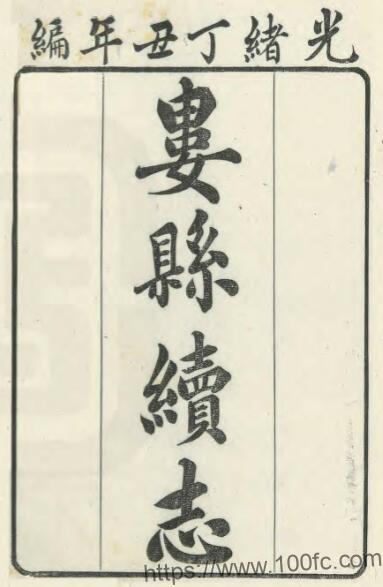 光緒丁丑年編
婁縣續志
https://www.100fc.com